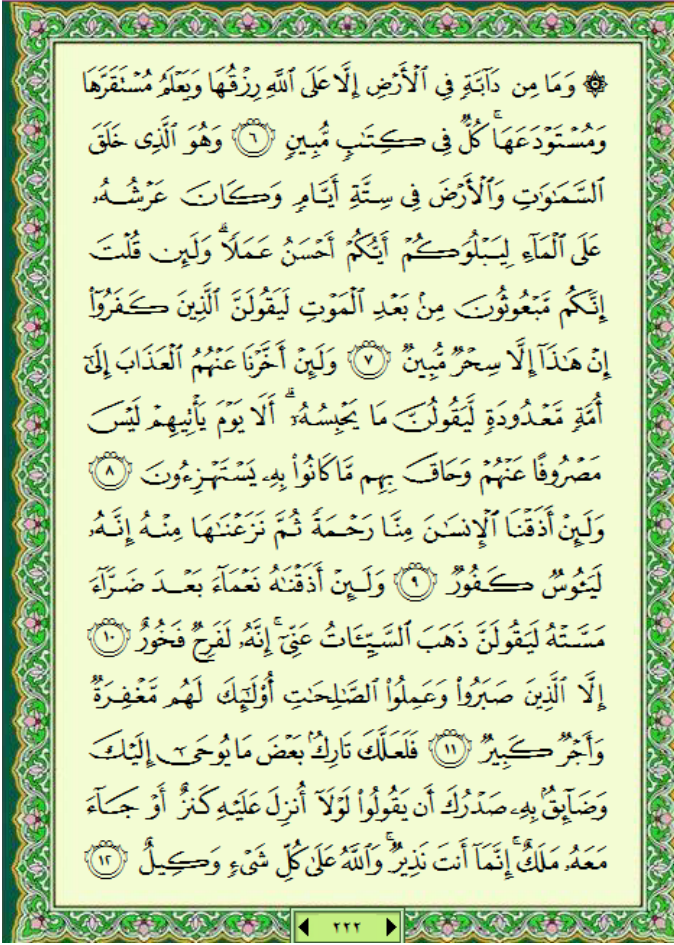 ۞ وَمَا مِن دَآبَّةٍ فِى ٱلْأَرْضِ إِلَّا عَلَى ٱللَّهِ رِزْقُهَا وَيَعْلَمُ مُسْتَقَرَّهَا
وَمُسْتَوْدَعَهَا ۚ كُلٌّ فِى كِتَـٰبٍ مُّبِينٍ ٦ وَهُوَ ٱلَّذِى خَلَقَ
ٱلسَّمَـٰوَٰتِ وَٱلْأَرْضَ فِى سِتَّةِ أَيَّامٍ وَكَانَ عَرْشُهُۥ
عَلَى ٱلْمَآءِ لِيَبْلُوَكُمْ أَيُّكُمْ أَحْسَنُ عَمَلًا ۗ وَلَئِن قُلْتَ
إِنَّكُم مَّبْعُوثُونَ مِنۢ بَعْدِ ٱلْمَوْتِ لَيَقُولَنَّ ٱلَّذِينَ كَفَرُوٓا۟
إِنْ هَـٰذَآ إِلَّا سِحْرٌ مُّبِينٌ ٧ وَلَئِنْ أَخَّرْنَا عَنْهُمُ ٱلْعَذَابَ إِلَىٰٓ
أُمَّةٍ مَّعْدُودَةٍ لَّيَقُولُنَّ مَا يَحْبِسُهُۥٓ ۗ أَلَا يَوْمَ يَأْتِيهِمْ لَيْسَ
مَصْرُوفًا عَنْهُمْ وَحَاقَ بِهِم مَّا كَانُوا۟ بِهِۦ يَسْتَهْزِءُونَ ٨
وَلَئِنْ أَذَقْنَا ٱلْإِنسَـٰنَ مِنَّا رَحْمَةً ثُمَّ نَزَعْنَـٰهَا مِنْهُ إِنَّهُۥ
لَيَـُٔوسٌ كَفُورٌ ٩ وَلَئِنْ أَذَقْنَـٰهُ نَعْمَآءَ بَعْدَ ضَرَّآءَ
مَسَّتْهُ لَيَقُولَنَّ ذَهَبَ ٱلسَّيِّـَٔاتُ عَنِّىٓ ۚ إِنَّهُۥ لَفَرِحٌ فَخُورٌ ١٠
إِلَّا ٱلَّذِينَ صَبَرُوا۟ وَعَمِلُوا۟ ٱلصَّـٰلِحَـٰتِ أُو۟لَـٰٓئِكَ لَهُم مَّغْفِرَةٌ
وَأَجْرٌ كَبِيرٌ ١١ فَلَعَلَّكَ تَارِكٌۢ بَعْضَ مَا يُوحَىٰٓ إِلَيْكَ
وَضَآئِقٌۢ بِهِۦ صَدْرُكَ أَن يَقُولُوا۟ لَوْلَآ أُنزِلَ عَلَيْهِ كَنزٌ أَوْ جَآءَ
مَعَهُۥ مَلَكٌ ۚ إِنَّمَآ أَنتَ نَذِيرٌ ۚ وَٱللَّهُ عَلَىٰ كُلِّ شَىْءٍ وَكِيلٌ ١٢
٢٢٢